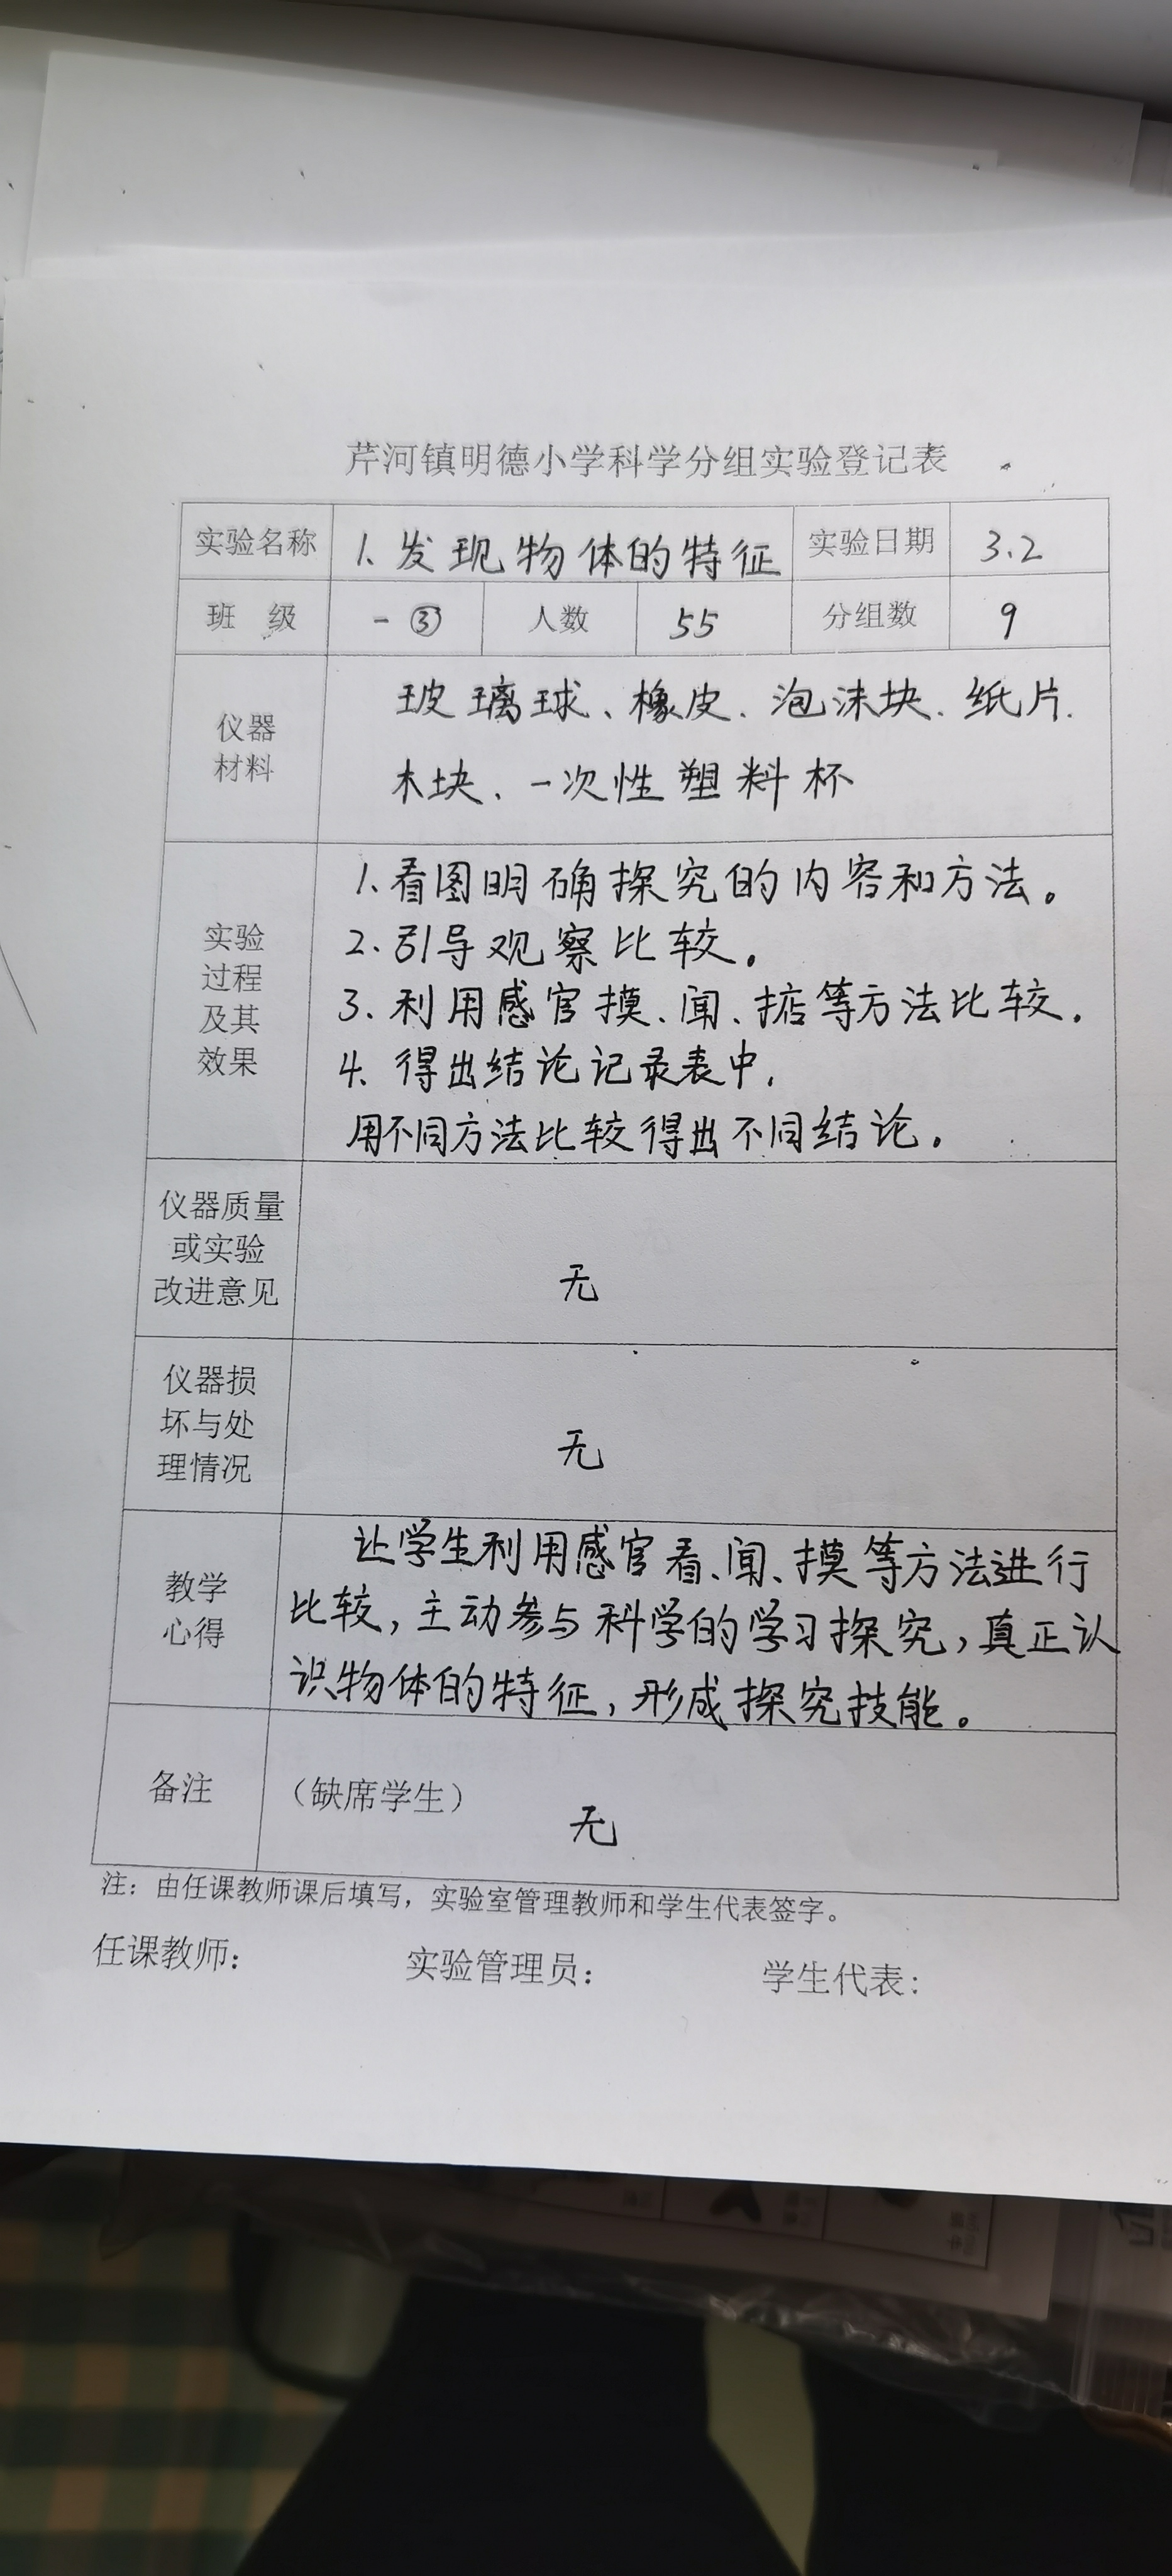 芹河镇明德小学科学分组实验登记表
实验名称 1.发现物体的特征 实验日期 3.2
班 级 一③ 人数 55 分组数 9
仪器
材料
玻璃球、橡皮、泡沫块、纸片、
木块、一次性塑料杯
实验
过程
及其
效果
1.看图明确探究的内容和方法。
2.引导观察比较。
3.利用感官摸、闻、掂等方法比较.
4.得出结论记录表中.
用不同方法比较得出不同结论。
仪器质量
或实验
改进意见
无
仪器损
坏与处
理情况
无
教学
心得
让学生利用感官看、闻、摸等方法进行
比较,主动参与科学的学习探究,真正认
识物体的特征,形成探究技能。
备注
(缺席学生)
无
注：由任课教师课后填写，实验室管理教师和学生代表签字。
任课教师： 实验管理员： 学生代表：